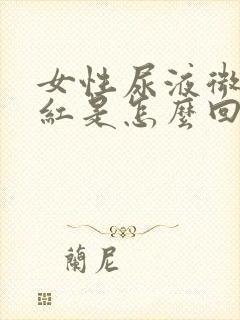 女性尿液微
紅是怎麼回
蘭尼